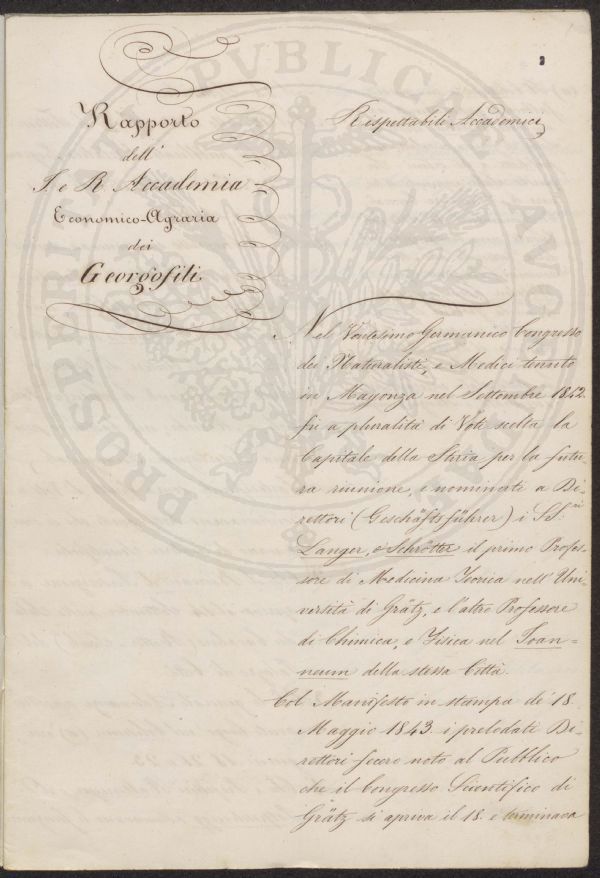 Rapporto
dell'
I. e R. Accademia
Economico-Agraria
dei
Georgofili
Rispettabili Accademici
Nel Ventesimo Germanico Congresso
dei Naturalisti, e Medici tenuto
in Magonza nel Settembre 1842.
fu a pluralità di Voti scelta la
Capitale della Stiria per la futu-
ra riunione, e nominati a Di-
rettori (Geschäftsführer) i SS.ri
Langer, e Schrötter il primo Profes-
sore di Medicina Teorica nell'Uni-
versità di Grätz, e l'altro Professore
di Chimica, e Fisica nel Joan-
neum della stessa Città.
Col Manifesto in stampa de' 18
Maggio 1843. i prelodati Di-
rettori fecero noto al Pubblico
che il Congresso Scientifico di
Grätz si apriva il 18. e terminava
PROSPERITATI PUBLICAE AUGENDAE